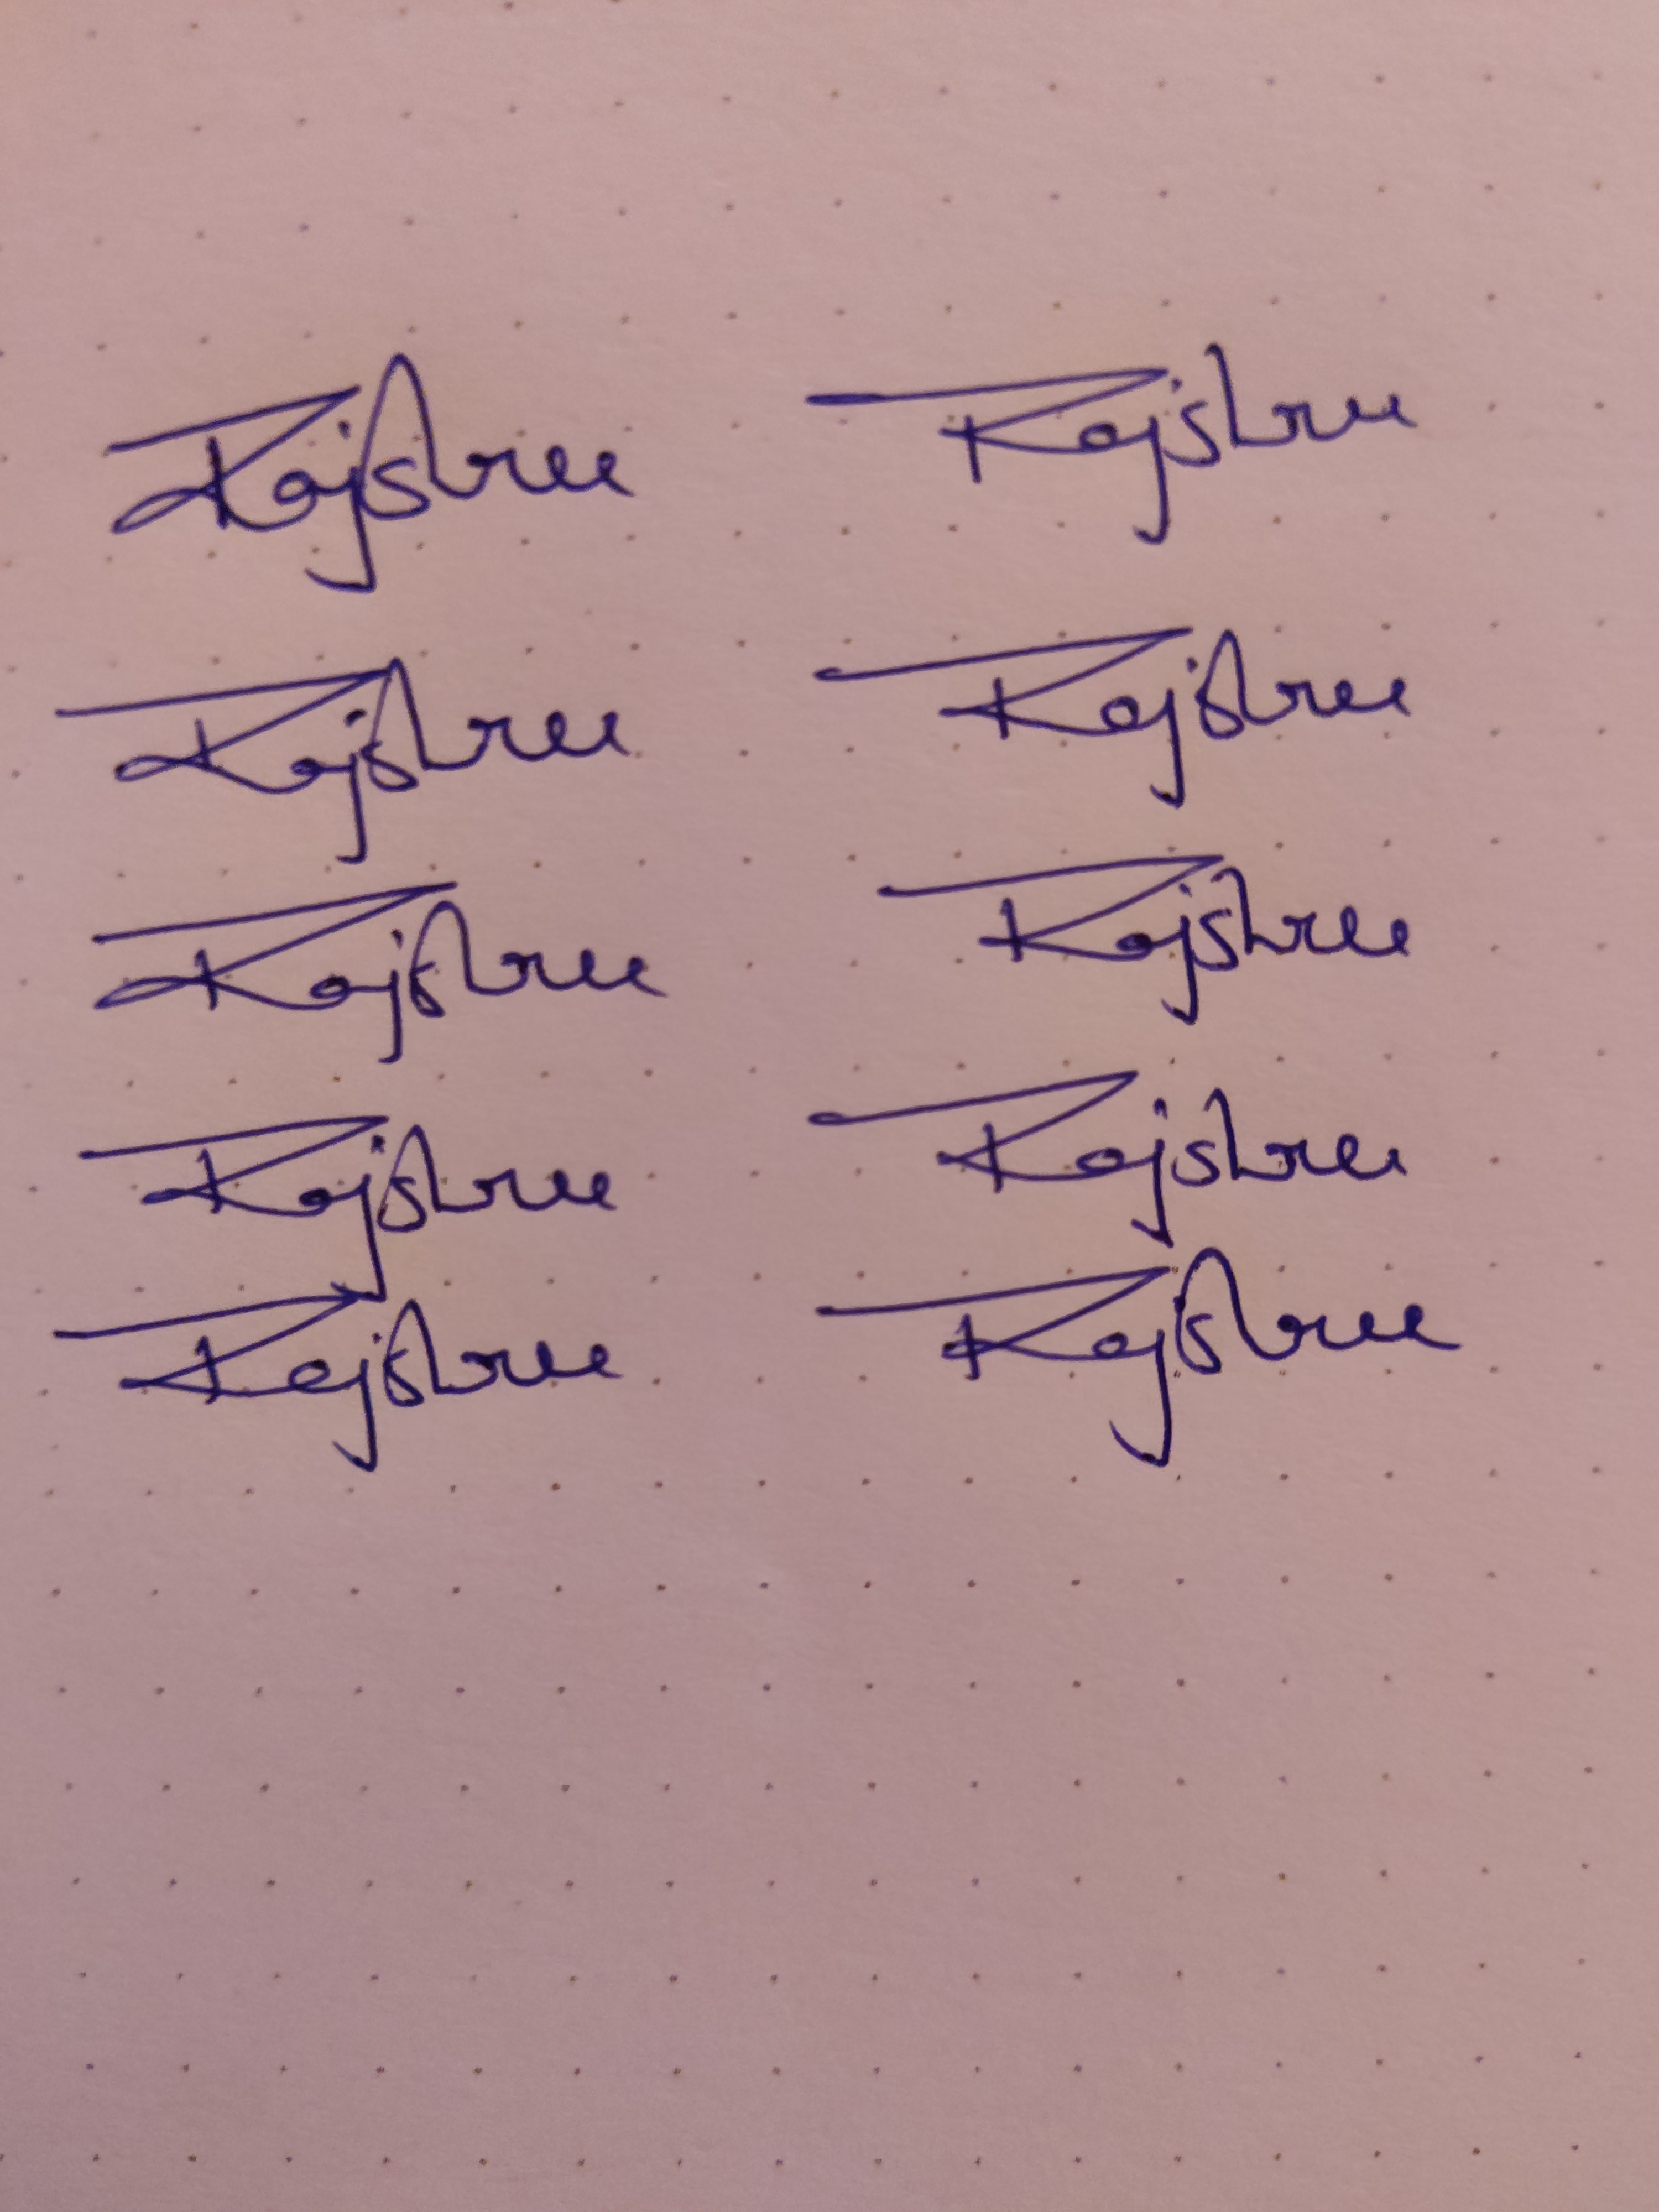 Rajshree Rajshree
Rajshree Rajshree
Rajshree Rajshree
Rajshree Rajshree
Rajshree Rajshree